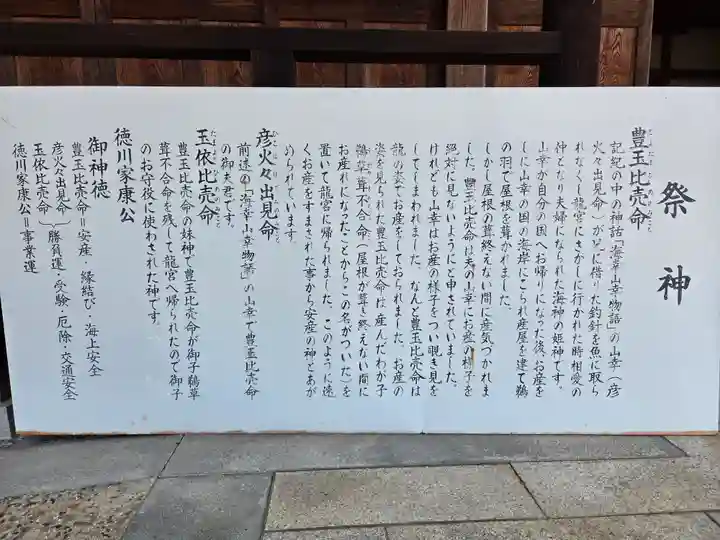 祭神
豊玉比売命
記紀の中の神話「海幸山幸物語」の山幸（彦
火々出見命）が兄に借りた釣針を魚に取ら
れなくし龍宮にさがしに行かれた時相愛の
仲となり夫婦になられた海神の姫神です。
山幸が自分の国へお帰りになった後、お産を
しに山幸の国の海岸にこられ産屋を建て鵜
の羽で屋根を葺かれました。
しかし屋根の葺終えない間に産気づかれま
した。豊玉比売命は夫の山幸にお産の様子を
絶対に見ないようにと申されていました。
けれども山幸はお産の様子をつい覗き見を
してしまわれました。なんと豊玉比売命は
龍の姿でお産をしておられました。お産の
姿を見られた豊玉比売命は、産んだわが子
鵜草葺不合命（屋根が葺き終えない間に
お産れになったことからこの名がついた）を
置いて龍宮に帰られました。このように速
くお産をすまされた事から安産の神とあが
められています。
彦火々出見命
前述の「海幸山幸物語」の山幸で豊玉比売命
の御夫君です。
玉依比売命
豊玉比売命の妹神で豊玉比売命が御子鵜草
葺不合命を残して龍宮へ帰られたので御子
のお守役に使わされた神です。
徳川家康公
御神徳
豊玉比売命＝安産・縁結び・海上安全
彦火々出見命
玉依比売命
勝負運・受験・厄除・交通安全
徳川家康公＝事業運